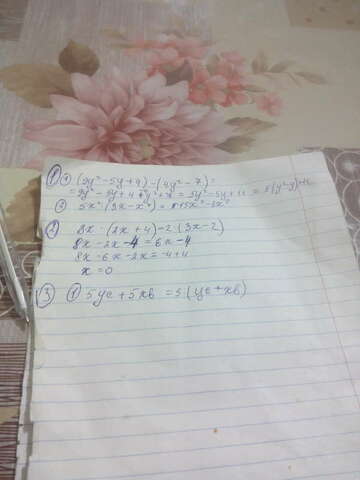 ① ① (9y²-5y+4)-(4y²-7)=
=9y²-5y+4-4y²+7=5y²-5y+11=5(y²-y)+11
② 5x²(3x-x²)=
② 8x-(2x+4)=2(3x-2)
8x-2x-4=6x-4
8x-6x-2x=-4+4
x=0
③ ① 5yc+5xb=5(yc+xb)